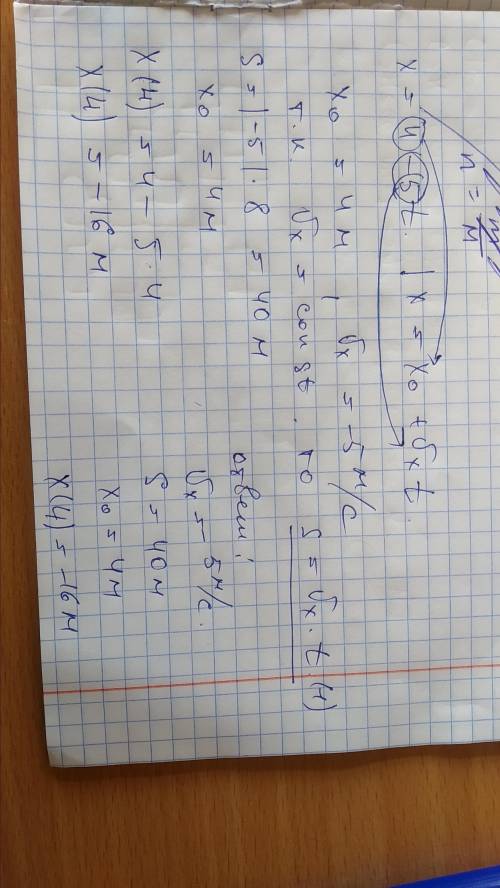 n = m/M
x = 4 - 5t. | x = x₀ + υₓt.
x₀ = 4 м | υₓ = -5 м/с
т.к. υₓ = const. то S = υₓ · t (4)
S = |-5| · 8 = 40 м
x₀ = 4 м
x(4) = 4 - 5·4
x(4) = -16 м
ответ:
υₓ = - 5 м/с.
S = 40 м
x₀ = 4 м
x(4) = -16 м